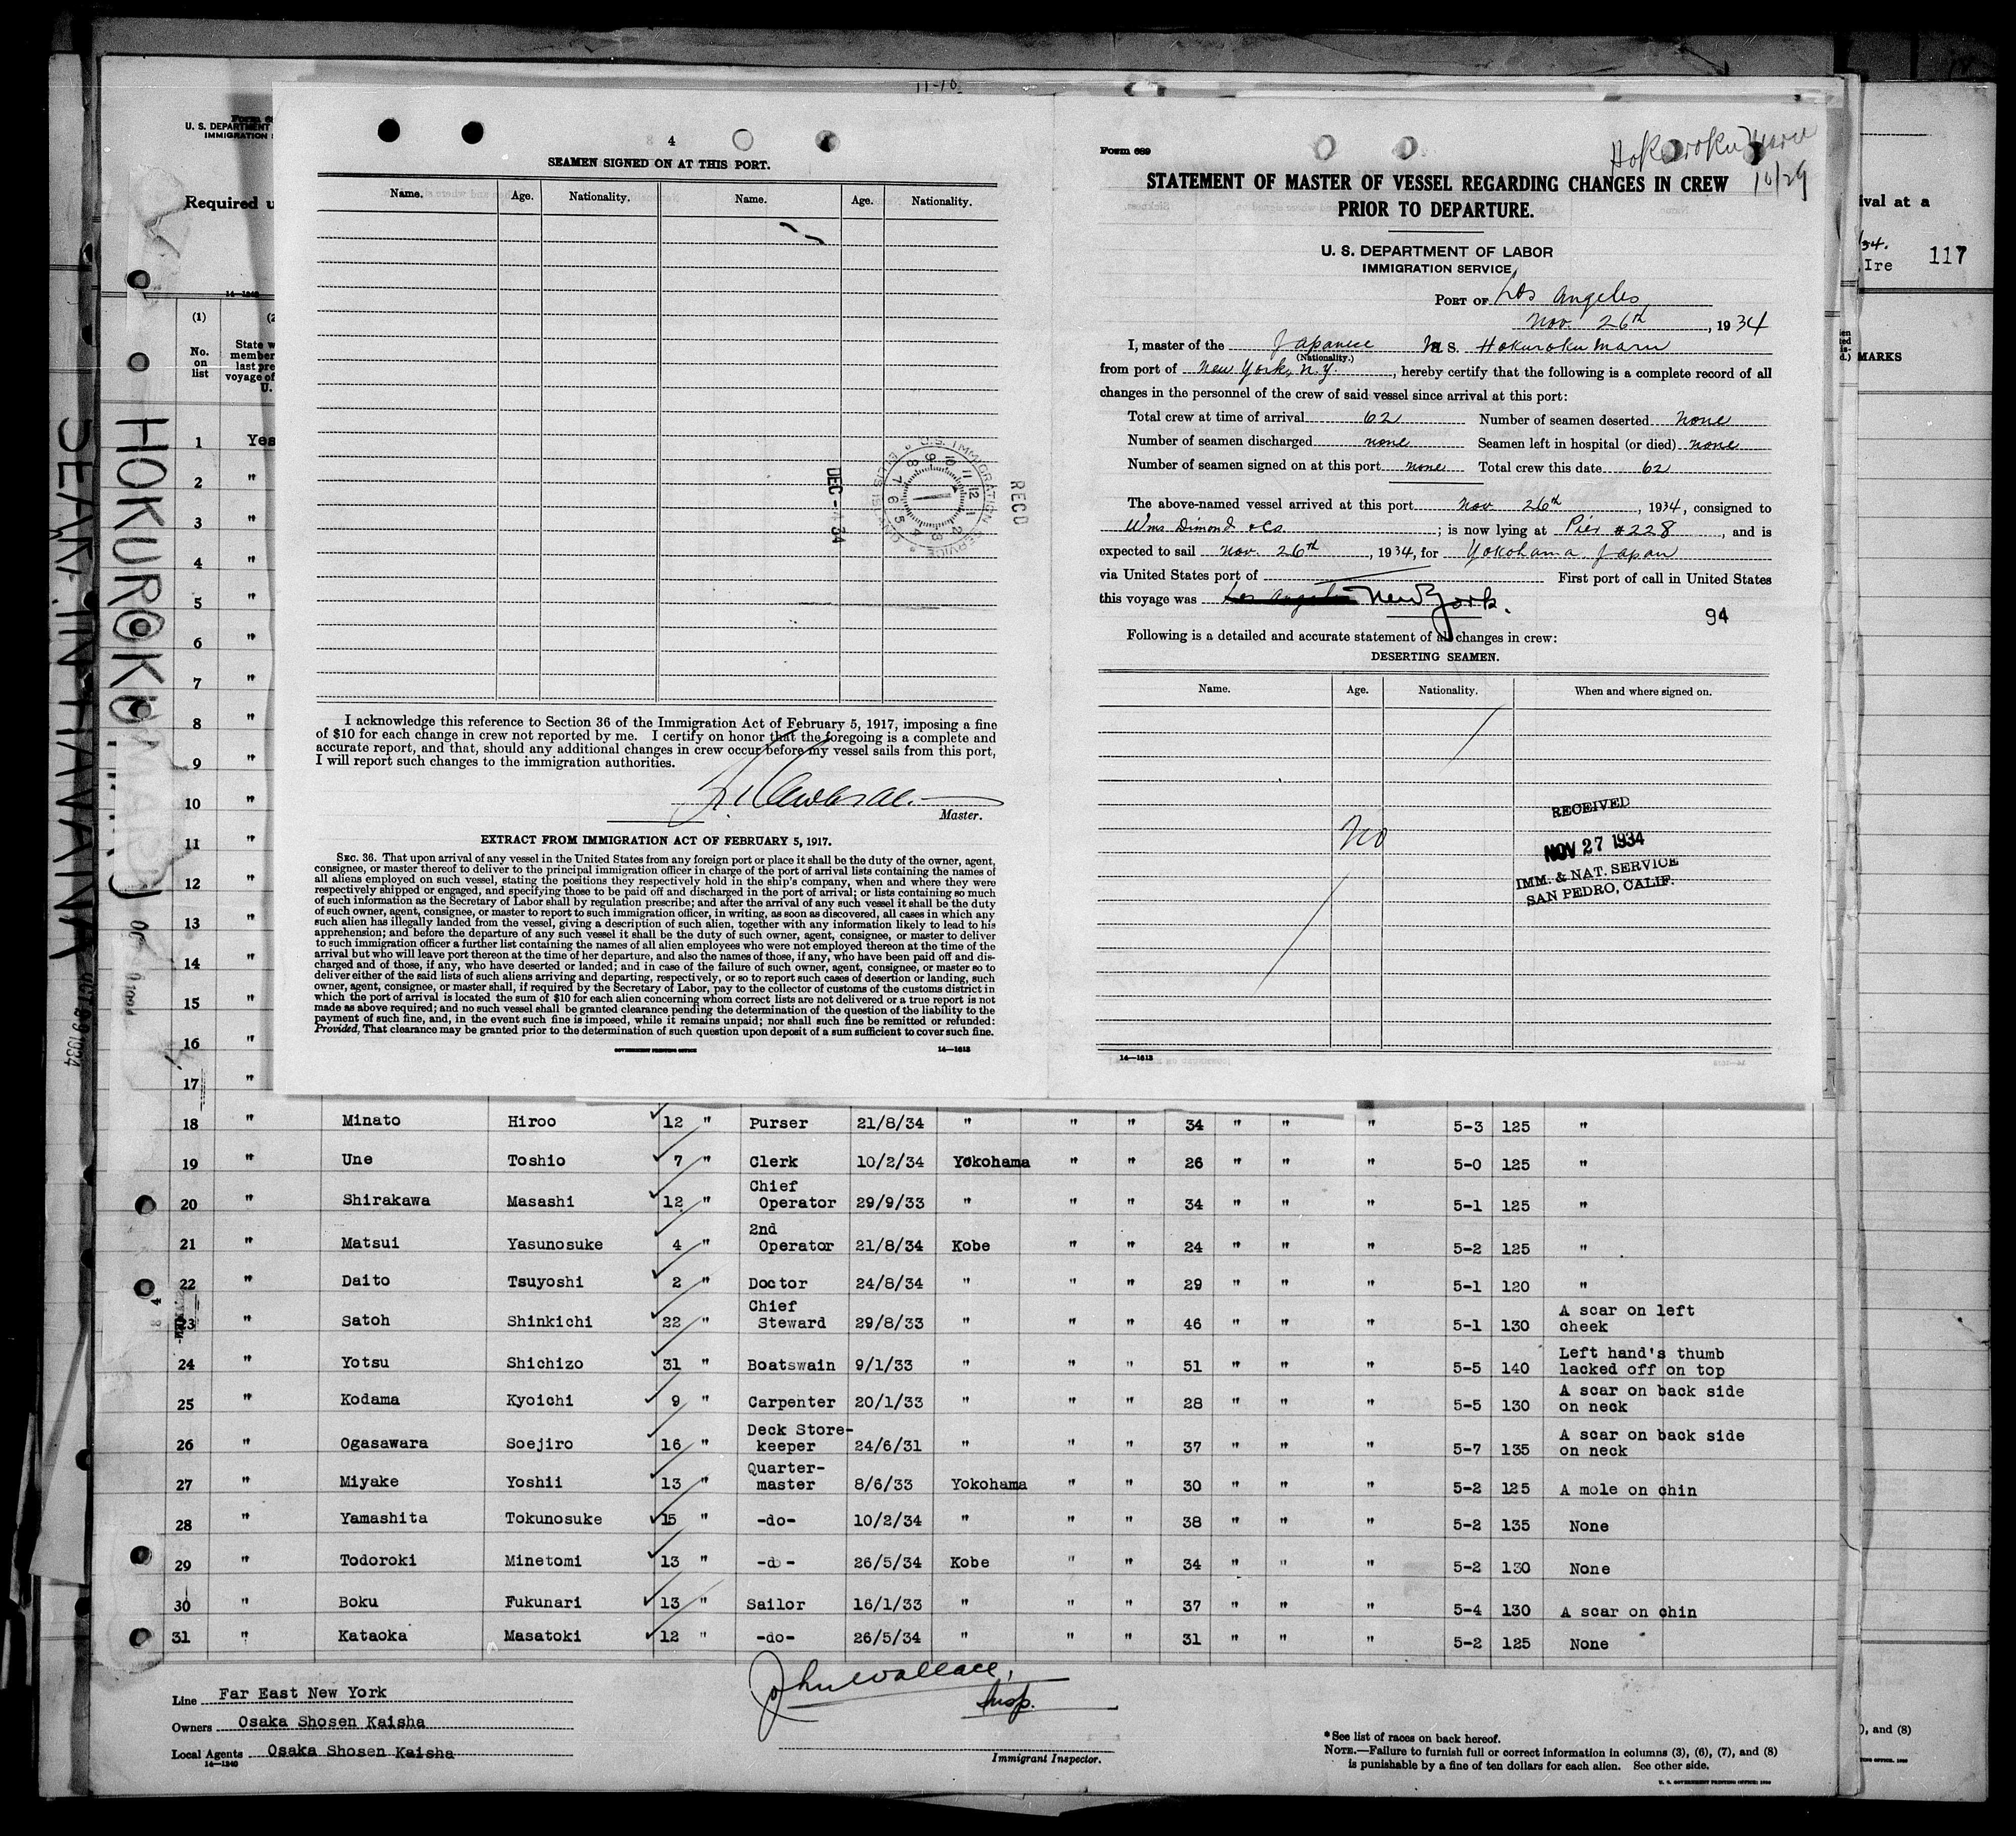 11-10
4
SEAMEN SIGNED ON AT THIS PORT.
Name. Age. Nationality. Name. Age. Nationality.
U.S. IMMIGRATION SERVICE ELLIS ISLAND
RECD
DEC 34
I acknowledge this reference to Section 36 of the Immigration Act of February 5, 1917, imposing a fine
of $10 for each change in crew not reported by me. I certify on honor that the foregoing is a complete and
accurate report, and that, should any additional changes in crew occur before my vessel sails from this port,
I will report such changes to the immigration authorities.
Master.
EXTRACT FROM IMMIGRATION ACT OF FEBRUARY 5, 1917.
SEC. 36. That upon arrival of any vessel in the United States from any foreign port or place it shall be the duty of the owner, agent,
consignee, or master thereof to deliver to the principal immigration officer in charge of the port of arrival lists containing the names of
all aliens employed on such vessel, stating the positions they respectively hold in the ship's company, when and where they were
respectively shipped or engaged, and specifying those to be paid off and discharged in the port of arrival; or lists containing so much
of such information as the Secretary of Labor shall by regulation prescribe; and after the arrival of any such vessel it shall be the duty
of such owner, agent, consignee, or master to report to such immigration officer, in writing, as soon as discovered, all cases in which any
such alien has illegally landed from the vessel, giving a description of such alien, together with any information likely to lead to his
apprehension; and before the departure of any such vessel it shall be the duty of such owner, agent, consignee, or master to deliver
to such immigration officer a further list containing the names of all alien employees who were not employed thereon at the time of the
arrival but who will leave port thereon at the time of her departure, and also the names of those, if any, who have been paid off and dis-
charged and of those, if any, who have deserted or landed; and in case of the failure of such owner, agent, consignee, or master so to
deliver either of the said lists of such aliens arriving and departing, respectively, or so to report such cases of desertion or landing, such
owner, agent, consignee, or master shall, if required by the Secretary of Labor, pay to the collector of customs of the customs district in
which the port of arrival is located the sum of $10 for each alien concerning whom correct lists are not delivered or a true report is not
made as above required; and no such vessel shall be granted clearance pending the determination of the question of the liability to the
payment of such fine, and, in the event such fine is imposed, while it remains unpaid; nor shall such fine be remitted or refunded:
Provided, That clearance may be granted prior to the determination of such question upon deposit of a sum sufficient to cover such fine.
GOVERNMENT PRINTING OFFICE 14—1613
Form 689
Hokuroku Maru
10/29
STATEMENT OF MASTER OF VESSEL REGARDING CHANGES IN CREW
PRIOR TO DEPARTURE.
U. S. DEPARTMENT OF LABOR
IMMIGRATION SERVICE
PORT OF Los Angeles,
Nov. 26th, 1934
I, master of the Japanese M S. Hokuroku Maru
(Nationality.)
from port of New York, N.Y., hereby certify that the following is a complete record of all
changes in the personnel of the crew of said vessel since arrival at this port:
Total crew at time of arrival 62 Number of seamen deserted none
Number of seamen discharged none Seamen left in hospital (or died) none
Number of seamen signed on at this port none Total crew this date 62
The above-named vessel arrived at this port Nov 26th, 1934, consigned to
Wms Dimond & Co.; is now lying at Pier #228, and is
expected to sail Nov. 26th, 1934, for Yokohama Japan
via United States port of First port of call in United States
this voyage was Los Angeles New York.
94
Following is a detailed and accurate statement of all changes in crew:
DESERTING SEAMEN.
Name. Age. Nationality. When and where signed on.
No
RECEIVED
NOV 27 1934
IMM. & NAT. SERVICE
SAN PEDRO, CALIF.
14—1613
Form 68
U. S. DEPARTMENT
IMMIGRATION S
Required u
14—1240
(1) (2
No. on list
State w
member
last pre
voyage of
U.
HOKUROKU MARU
SEAM. IN HAVANA
OCT 29 1934
ival at a
/34.
Ire 117
MARKS
1 Yes
2 "
3 "
4 "
5 "
6 "
7 "
8 "
9 "
10 "
11 "
12 "
13 "
14 "
15 "
16 "
17 "
18 " Minato Hiroo 12 " Purser 21/8/34 " " " 34 " " " 5-3 125 "
19 " Une Toshio 7 " Clerk 10/2/34 Yokohama " " 26 " " " 5-0 125 "
20 " Shirakawa Masashi 12 " Chief Operator 29/9/33 " " " 34 " " " 5-1 125 "
21 " Matsui Yasunosuke 4 " 2nd Operator 21/8/34 Kobe " " 24 " " " 5-2 125 "
22 " Daito Tsuyoshi 2 " Doctor 24/8/34 " " " 29 " " " 5-1 120 "
23 " Satoh Shinkichi 22 " Chief Steward 29/8/33 " " " 46 " " " 5-1 130 A scar on left cheek
24 " Yotsu Shichizo 31 " Boatswain 9/1/33 " " " 51 " " " 5-5 140 Left hand's thumb lacked off on top
25 " Kodama Kyoichi 9 " Carpenter 20/1/33 " " " 28 " " " 5-5 130 A scar on back side on neck
26 " Ogasawara Soejiro 16 " Deck Store-keeper 24/6/31 " " " 37 " " " 5-7 135 A scar on back side on neck
27 " Miyake Yoshii 13 " Quarter-master 8/6/33 Yokohama " " 30 " " " 5-2 125 A mole on chin
28 " Yamashita Tokunosuke 15 " -do- 10/2/34 " " " 38 " " " 5-2 135 None
29 " Todoroki Minetomi 13 " -do- 26/5/34 Kobe " " 34 " " " 5-2 130 None
30 " Boku Fukunari 13 " Sailor 16/1/33 " " " 37 " " " 5-4 130 A scar on chin
31 " Kataoka Masatoki 12 " -do- 26/5/34 " " " 31 " " " 5-2 125 None
Line Far East New York
Owners Osaka Shosen Kaisha
Local Agents Osaka Shosen Kaisha
14—1240
John Wallace,
Insp.
Immigrant Inspector.
*See list of races on back hereof.
NOTE.—Failure to furnish full or correct information in columns (3), (6), (7), and (8)
is punishable by a fine of ten dollars for each alien. See other side.
U. S. GOVERNMENT PRINTING OFFICE: 1930
), and (8)